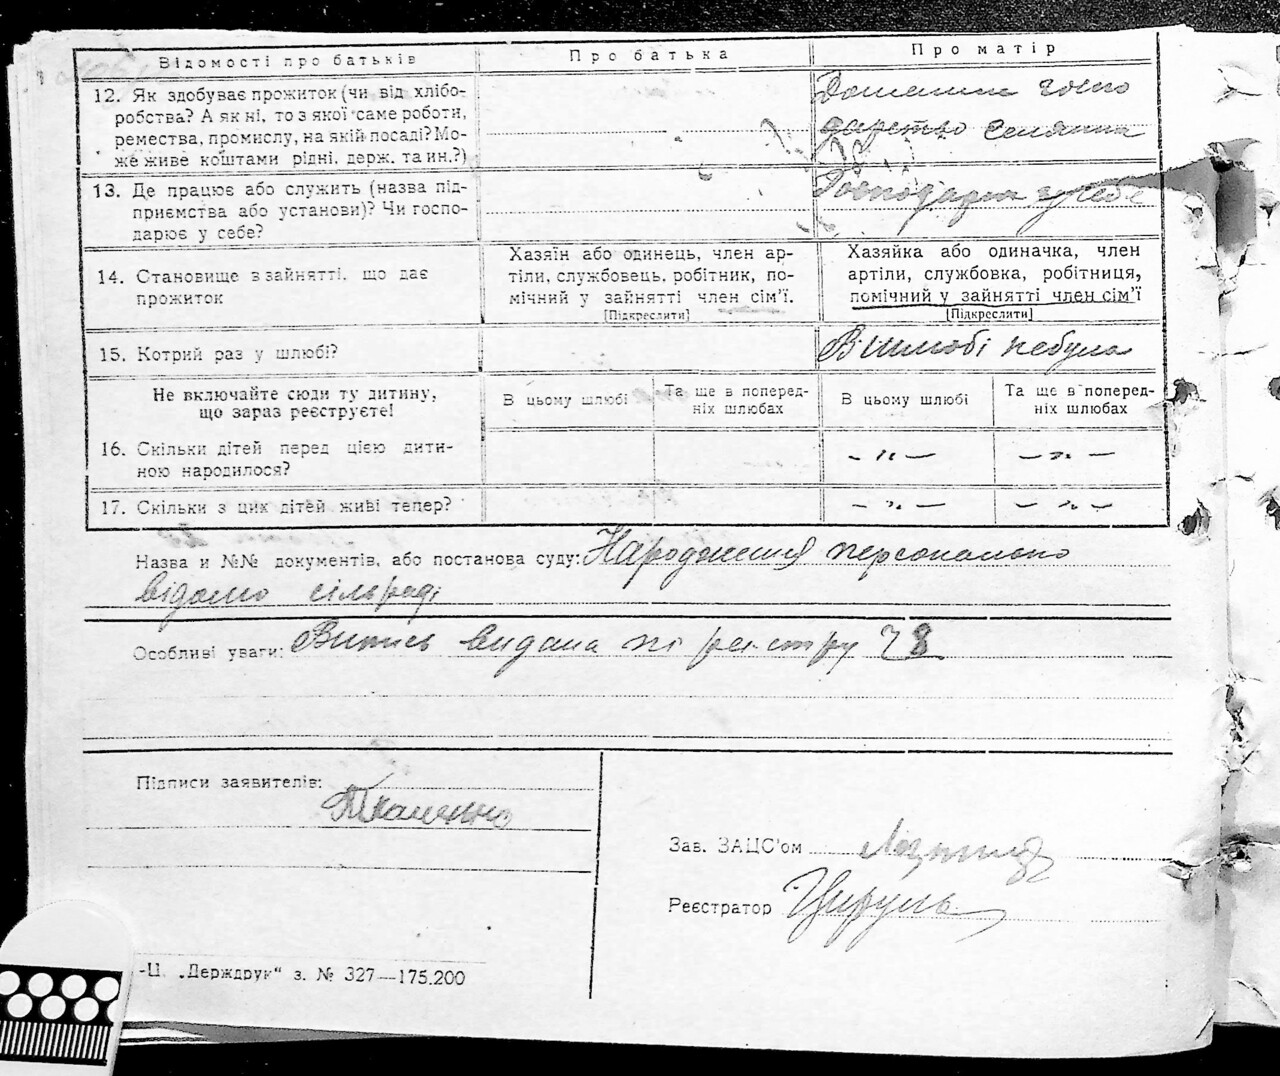 Відомості про батьків
Про батька
Про матір
12. Як здобуває прожиток (чи від хлібо-
робства? А як ні, то з якої саме роботи,
ремества, промислу, на якій посаді? Мо-
же живе коштами рідні, держ. та ин.?)
Домашнє госпо
дарство селянка
13. Де працює або служить (назва під-
приємства або установи)? Чи госпо-
дарює у себе?
Господарка у себе
14. Становище в зайнятті, що дає
прожиток
Хазяїн або одинець, член ар-
тіли, службовець, робітник, по-
мічний у зайнятті член сім'ї.
[Підкреслити]
Хазяйка або одиначка, член
артіли, службовка, робітниця,
помічний у зайнятті член сім'ї
[Підкреслити]
15. Котрий раз у шлюбі?
В шлюбі небула
Не включайте сюди ту дитину,
що зараз реєструєте!
В цьому шлюбі
Та ще в поперед-
ніх шлюбах
В цьому шлюбі
Та ще в поперед-
ніх шлюбах
16. Скільки дітей перед цією дити-
ною народилося?
— „ — — „ —
17. Скільки з цих дітей живі тепер?
— „ — — „ —
Назва и №№ документів, або постанова суду: Народження персонально
відомо сільраді
Особливі уваги: Випись видана по реєстру 78
Підписи заявителів:
Ткаченко
Зав. ЗАЦС'ом
Реєстратор Цируль
-Ц. „Держдрук“ з. № 327—175.200